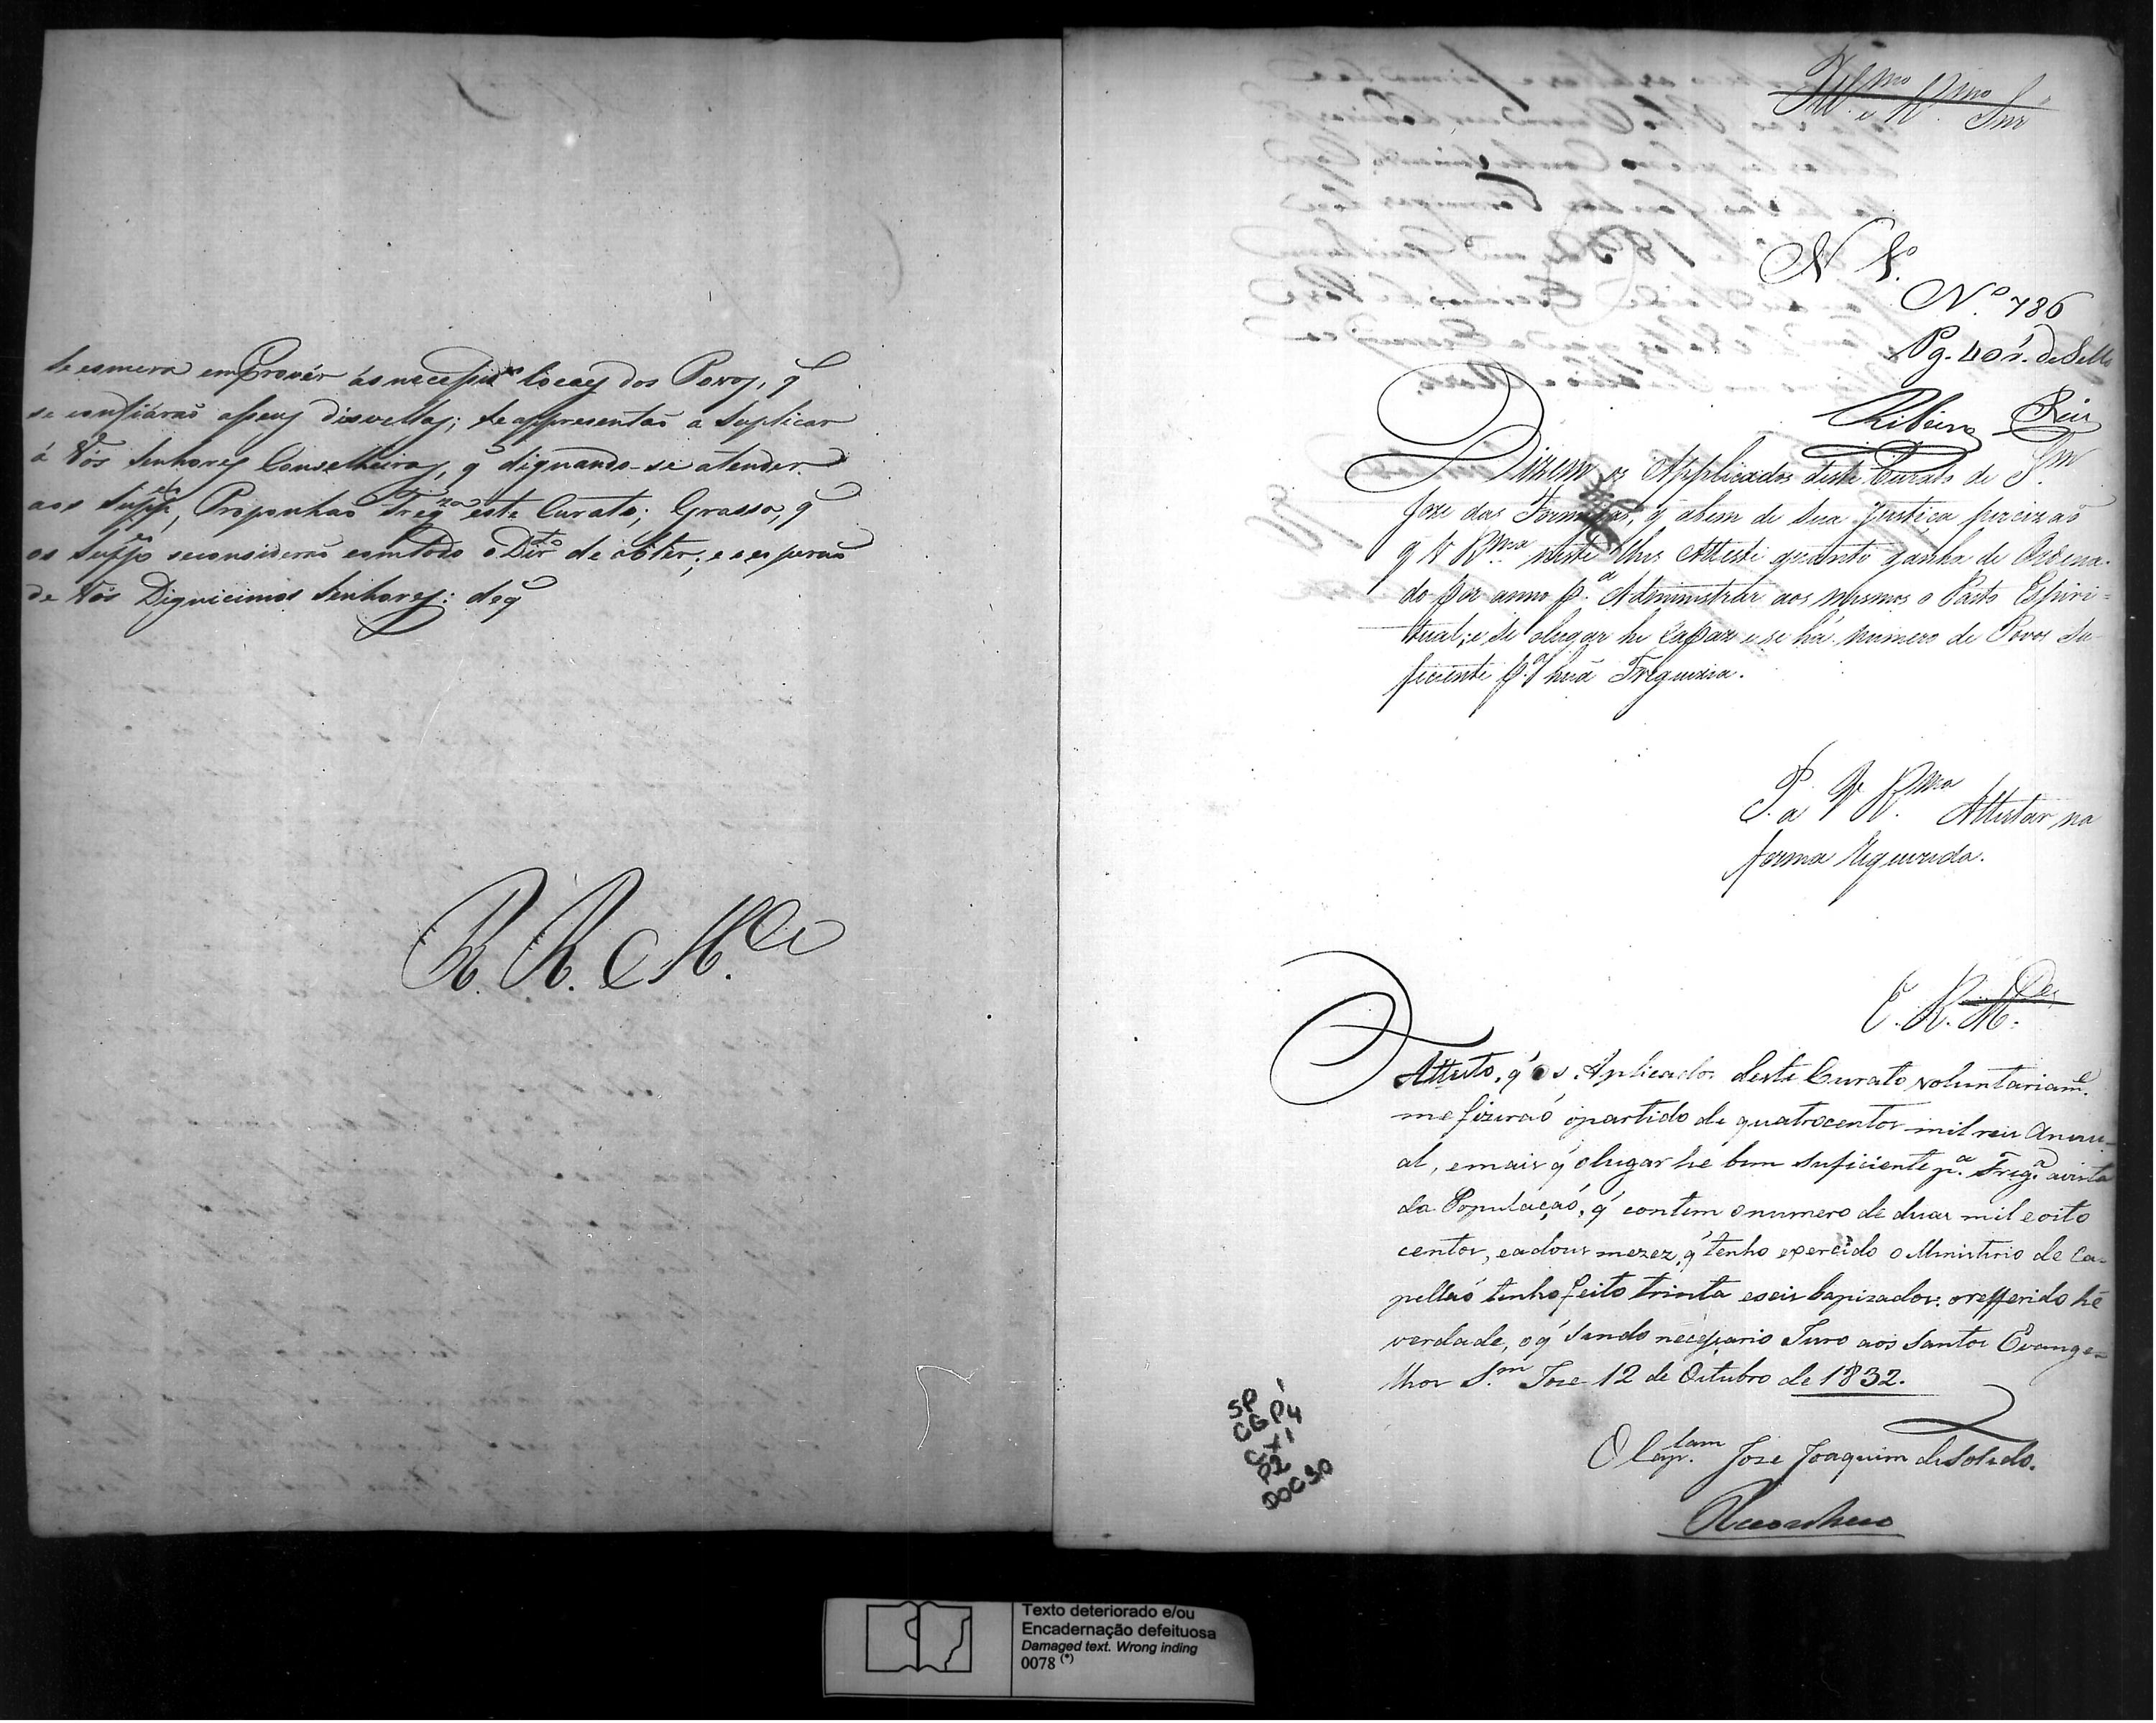 se esmera em Provêr ás necessid.es locaes dos Povos, q̃
se confiárão a seus disvellos; se appresentão a suplicar
á Vós Senhores Conselheiros, q̃ dignando-se atender
aos Supp.es, Proponhão Freg.na este Curato; Grassa, q̃
os Supp.es se considerão com todo o Dir.to de obter; e esperão
de Vós Dignicimos Senhores: do q̃
R. R. M.ce
Ill.mo e R.mo Snr
N.o 786
Pg. 40 r.s de Sello
Ribeiro
Dizem os Applicados deste Curato de S.m
Joze das Formigas, q̃ abem de sua Justiça percizão
q̃ V R.ma neste lhes Atteste quanto ganha de Ordena-
do por anno p.a Administrar aos mesmos o Pasto Espiri-
tual; e se o lugar he capaz e se há numero de Povos Su-
ficiente p.a huã Freguezia.
P. a V R.ma Attestar na
forma requerida.
E. R. M.ce
Attesto, q́ os Aplicados deste Curato voluntariam.e
me fizeraó o partido de quatrocentos mil reis Annu-
al, e mais q́ o lugar he bem suficiente p.a Freg.a avista
da Populaçaó, q́ contem o numero de duas mil e oito
centos, e a dous mezez, q́ tenho exercido o Ministerio de Ca-
pellaó tenho feito trinta e seis bapizados: o refferido hé
verdade, o q́ sendo necessario Juro aos Santos Evange-
lhos S.m Joze 12 de Outubro de 1832.
O Cap.lam Joze Joaquim de Toledo.
Reconheco
SP
CG P4
CX1
P2
DOC30
Texto deteriorado e/ou
Encadernação defeituosa
Damaged text. Wrong inding
0078 (*)